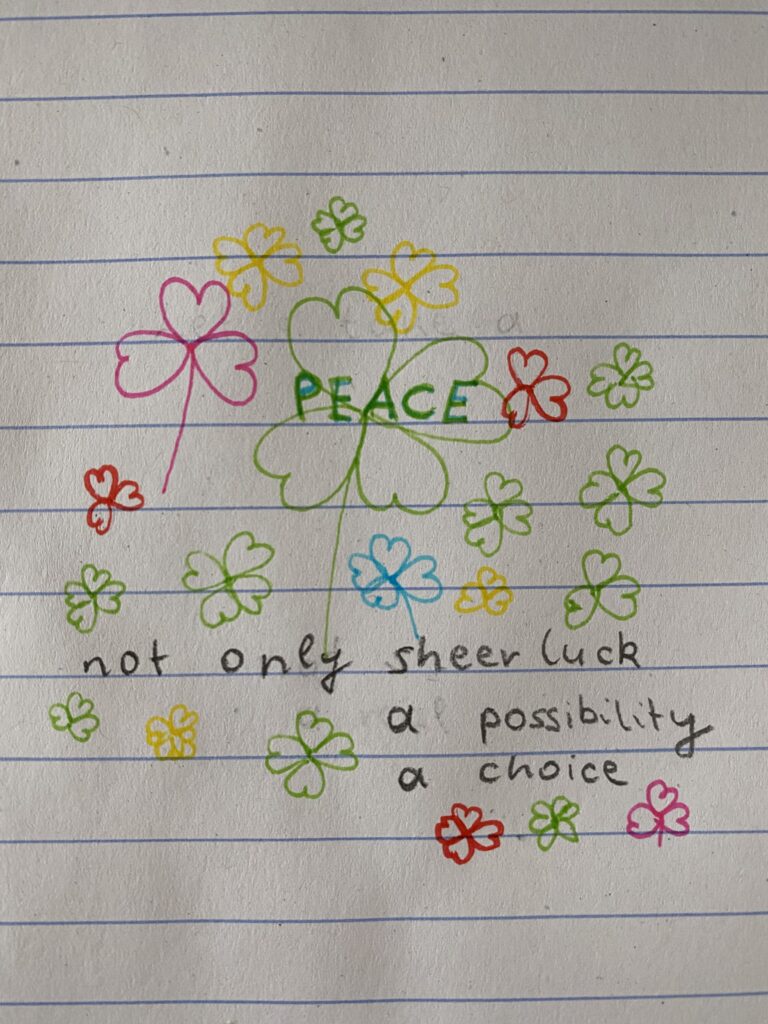 PEACE
not only sheer luck
a possibility
a choice